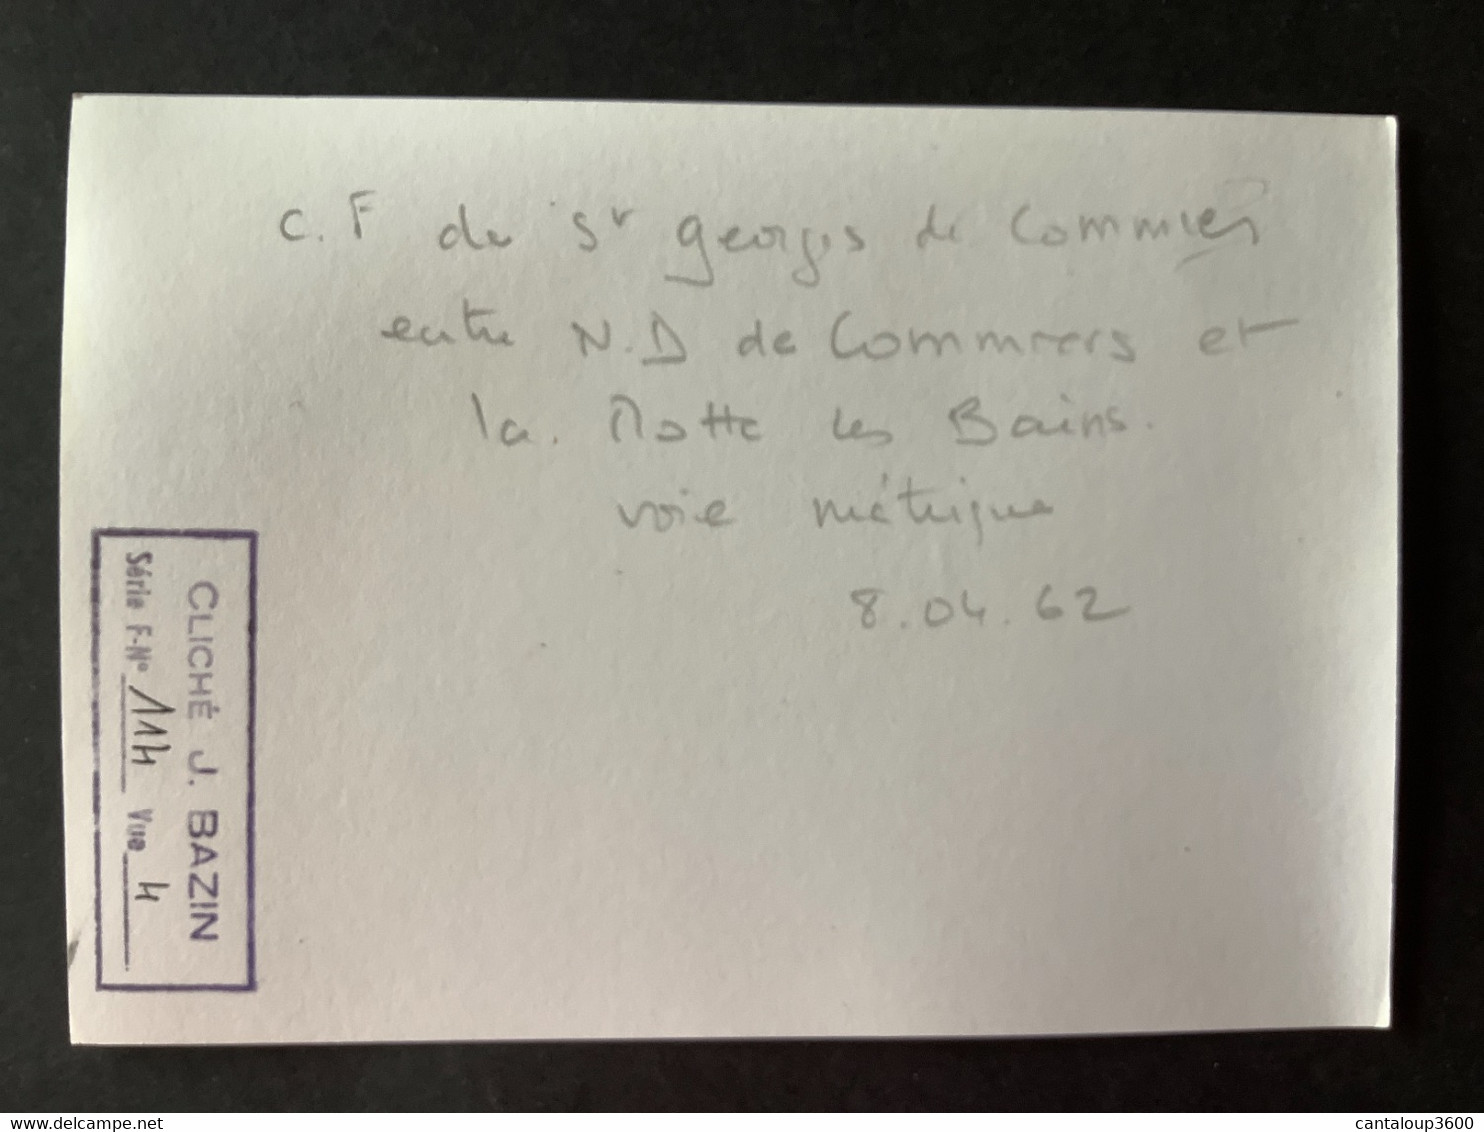 C. F de St Georges de Commiers
entre N.D de Commiers et
la. Motte les Bains.
voie métrique
8.04.62
CLICHÉ J. BAZIN
Série F-N° 114 Vue 4
www.delcampe.net
cantaloup3600